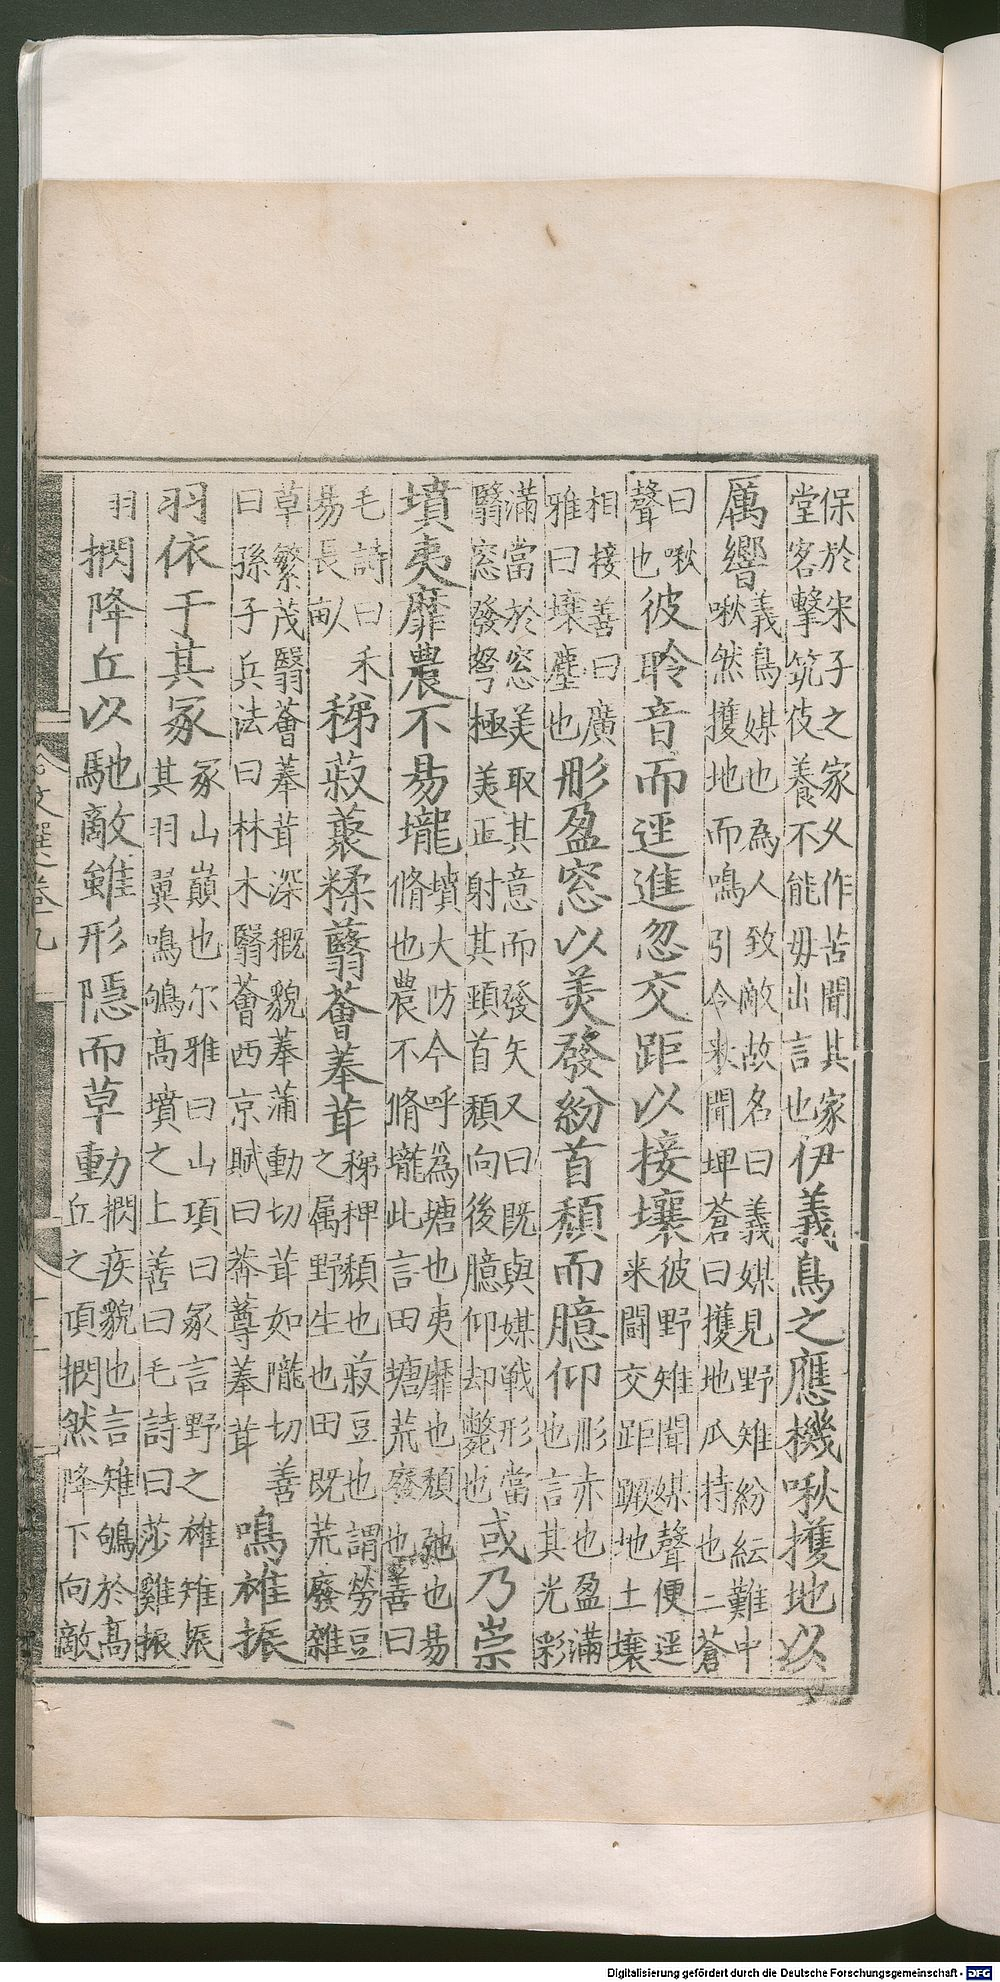 保於宋子之家久作苦聞其家
堂客擊筑伎養不能毋出言也伊義鳥之應機啾擭地以
厲響義鳥媒也為人致敵故名曰義媒見野雉紛紜難中
啾然擭地而鳴引令來閗埤蒼曰擭地爪持也二蒼
曰啾
聲也彼聆音而逕進忽交距以接壤彼野雉聞媒聲便逕
来闘交距蹶地土壤
相接善曰廣
雅曰壤塵也彤盈窓以美發紛首頹而臆仰彤赤也盈滿
也言其光彩
滿當於窓美取其意而發矢又曰既與媒戦形當
翳窓發弩極美正射其頸首頹向後臆仰却斃也或乃崇
墳夷靡農不易壠墳大防今呼為塘也夷靡也頹弛也易
脩也農不脩壠此言田塘荒廢也善曰
毛詩曰禾
易長畝稊菽藂糅蘙薈菶茸稊稗類也菽豆也謂勞豆
之属野生也田既荒廢雜
草繁茂翳薈菶茸深穊貌菶蒲動切茸如隴切善
曰孫子兵法曰林木翳薈西京賦曰莽蓴菶茸鳴雊振
羽依于其冢冢山巔也尔雅曰山項曰冢言野之雊雉振
其羽翼鳴鴝髙墳之上善曰毛詩曰莎雞振
羽捫降丘以馳敵雖形隱而草動捫疾貌也言雉鴝於髙
丘之項捫然降下向敵
文選卷九
Digitalisierung gefördert durch die Deutsche Forschungsgemeinschaft - DFG